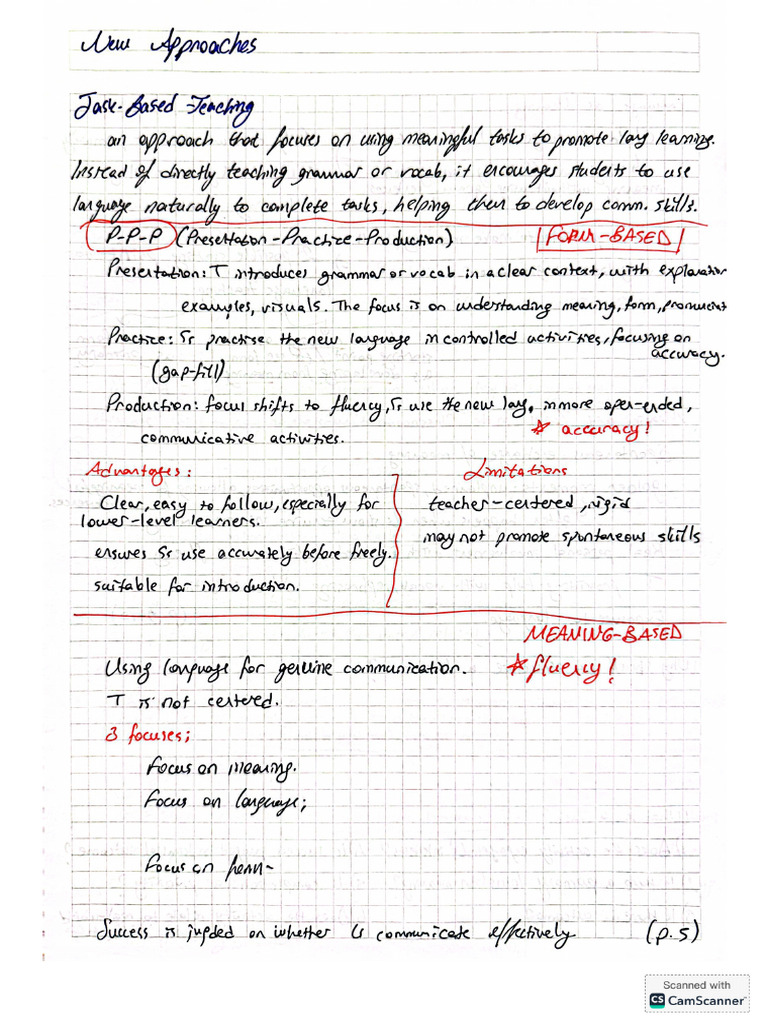 New Approaches
Task-Based-Teaching
an approach that focuses on using meaningful tasks to promote lang learning.
Instead of directly teaching grammar or vocab, it encourages students to use
language naturally to complete tasks, helping them to develop comm. skills.
P-P-P (Presentation-Practice-Production) FORM-BASED
Presentation: T introduces grammar or vocab in a clear context, with explanation
examples, visuals. The focus is on understanding meaning, form,
Practice: Ss practise the new language in controlled activities, focusing on
accuracy.
(gap-fill)
Production: focus shifts to fluency, Ss use the new lang. in more open-ended,
communicative activities. * accuracy!
Advantages:
Clear, easy to follow, especially for
lower-level learners.
ensures Ss use accurately before freely.
suitable for introduction.
Limitations
teacher-centered, rigid
may not promote spontaneous skills
MEANING-BASED
Using language for genuine communication. * fluency!
T is not centered.
3 focuses;
Focus on meaning.
Focus on language;
Focus on
Success is on whether communicate effectively (p.5)
Scanned with
CS CamScanner